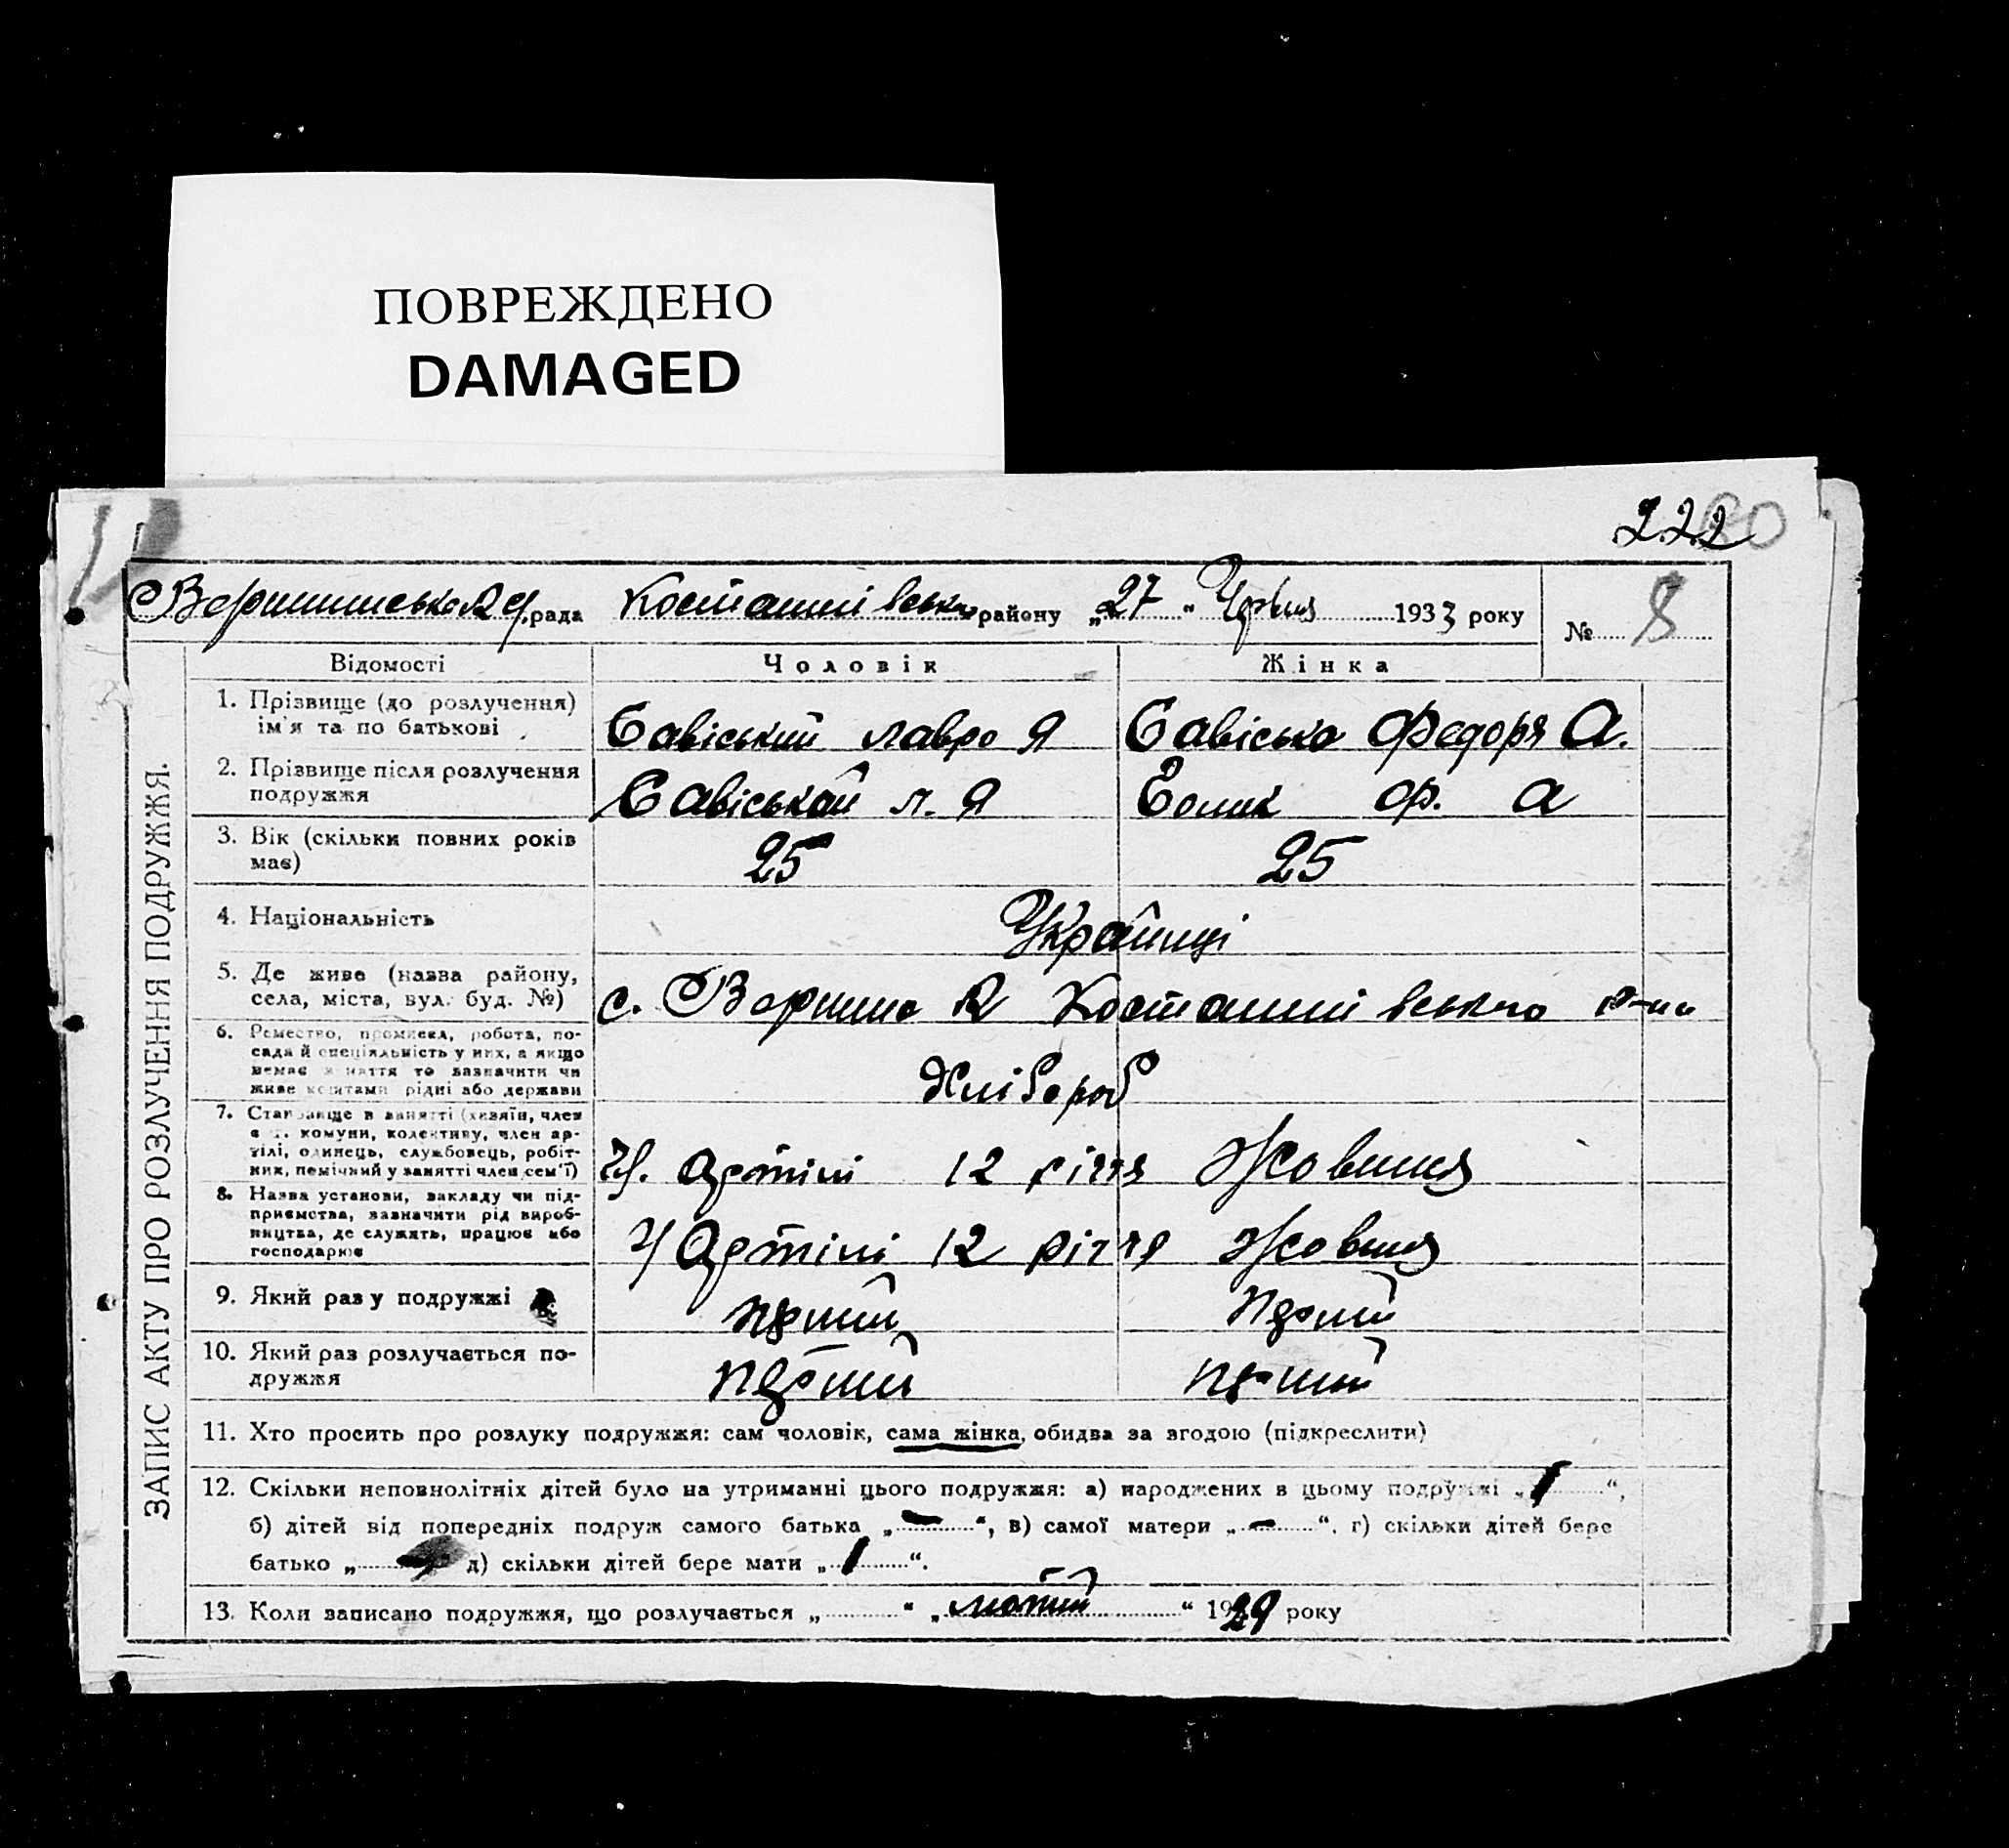 ПОВРЕЖДЕНО
DAMAGED
222
рада Костянтівськ району „27“ Червня 1933 року
№ 8
ЗАПИС АКТУ ПРО РОЗЛУЧЕННЯ ПОДРУЖЖЯ.
Відомості Чоловік Жінка
1. Прізвище (до розлучення)
ім'я та по батькові
Савіський лавро Я Савіська Федоря А.
2. Прізвище після розлучення
подружжя
Савіський л. Я Ф. А
3. Вік (скільки повних років
має)
25 25
4. Національність
Українці
5. Де живе (назва району,
села, міста, вул. буд. №)
с.
6. Ремество, промисел, робота, по-
сада й спеціяльність у них, а якщо
немає заняття то зазначити чи
живе коштами рідні або держави
Хлібороб
7. Становище в занятті (хазяїн, член
с. г. комуни, колективу, член ар-
тілі, одинець, службовець, робіт-
ник, помічний у занятті член сем'ї)
Ч. Артілі 12 річчя Жовтня
8. Назва установи, закладу чи під-
приємства, зазначити рід вироб-
ництва, де служить, працює або
господарює
Ч Артілі 12 річчя Жовтня
9. Який раз у подружжі
перший перший
10. Який раз розлучається по-
дружжя
перший перший
11. Хто просить про розлуку подружжя: сам чоловік, сама жінка, обидва за згодою (підкреслити)
12. Скільки неповнолітніх дітей було на утриманні цього подружжя: а) народжених в цьому подружжі „1“,
б) дітей від попередніх подруж самого батька „—“, в) самої матери „—“. г) скільки дітей бере
батько „—“ д) скільки дітей бере мати „1“.
13. Коли записано подружжя, що розлучається „ “ „лютий“ 1929 року